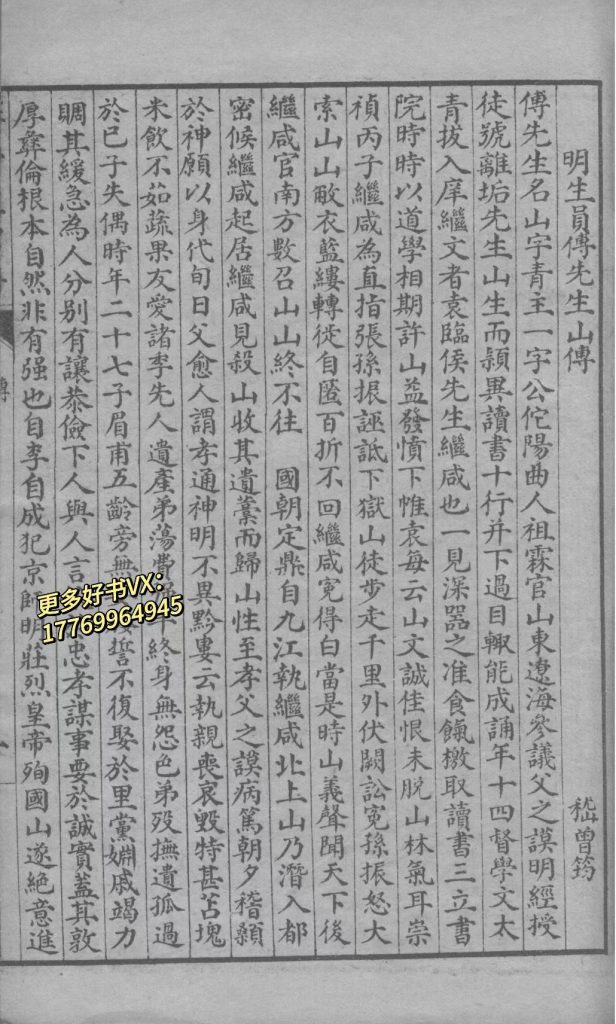 明生員傅先生山傳
嵇曾筠
傅先生名山字青主一字公佗陽曲人祖霖官山東遼海參議父之謨明經授
徒號離垢先生山生而穎異讀書十行并下過目輒能成誦年十四督學文太
青拔入庠繼文者袁臨侯先生繼咸也一見深器之准食餼檄取讀書三立書
院時時以道學相期許山益發憤下帷袁每云山文誠佳恨未脫山林氣耳崇
禎丙子繼咸為直指張孫振誣詆下獄山徒步走千里外伏闕訟冤孫振怒大
索山山敝衣籃縷轉徙自匿百折不回繼咸冤得白當是時山義聲聞天下後
繼咸官南方數召山山終不往　國朝定鼎自九江執繼咸北上山乃潛入都
密候繼咸起居繼咸見殺山收其遺藁而歸山性至孝父之謨病篤朝夕稽顙
於神願以身代旬日父愈人謂孝通神明不異黔婁云執親喪哀毀特甚苫塊
米飲不茹蔬果友愛諸季先人遺產弟蕩費終身無怨色弟歿撫遺孤過
於已子失偶時年二十七子眉甫五齡旁無誓不復娶於里黨婣戚竭力
賙其緩急為人分別有讓恭儉下人與人言忠孝謀事要於誠實蓋其敦
厚彝倫根本自然非有强也自李自成犯京師明莊烈皇帝殉國山遂絕意進
傳
更多好书VX：
17769964945